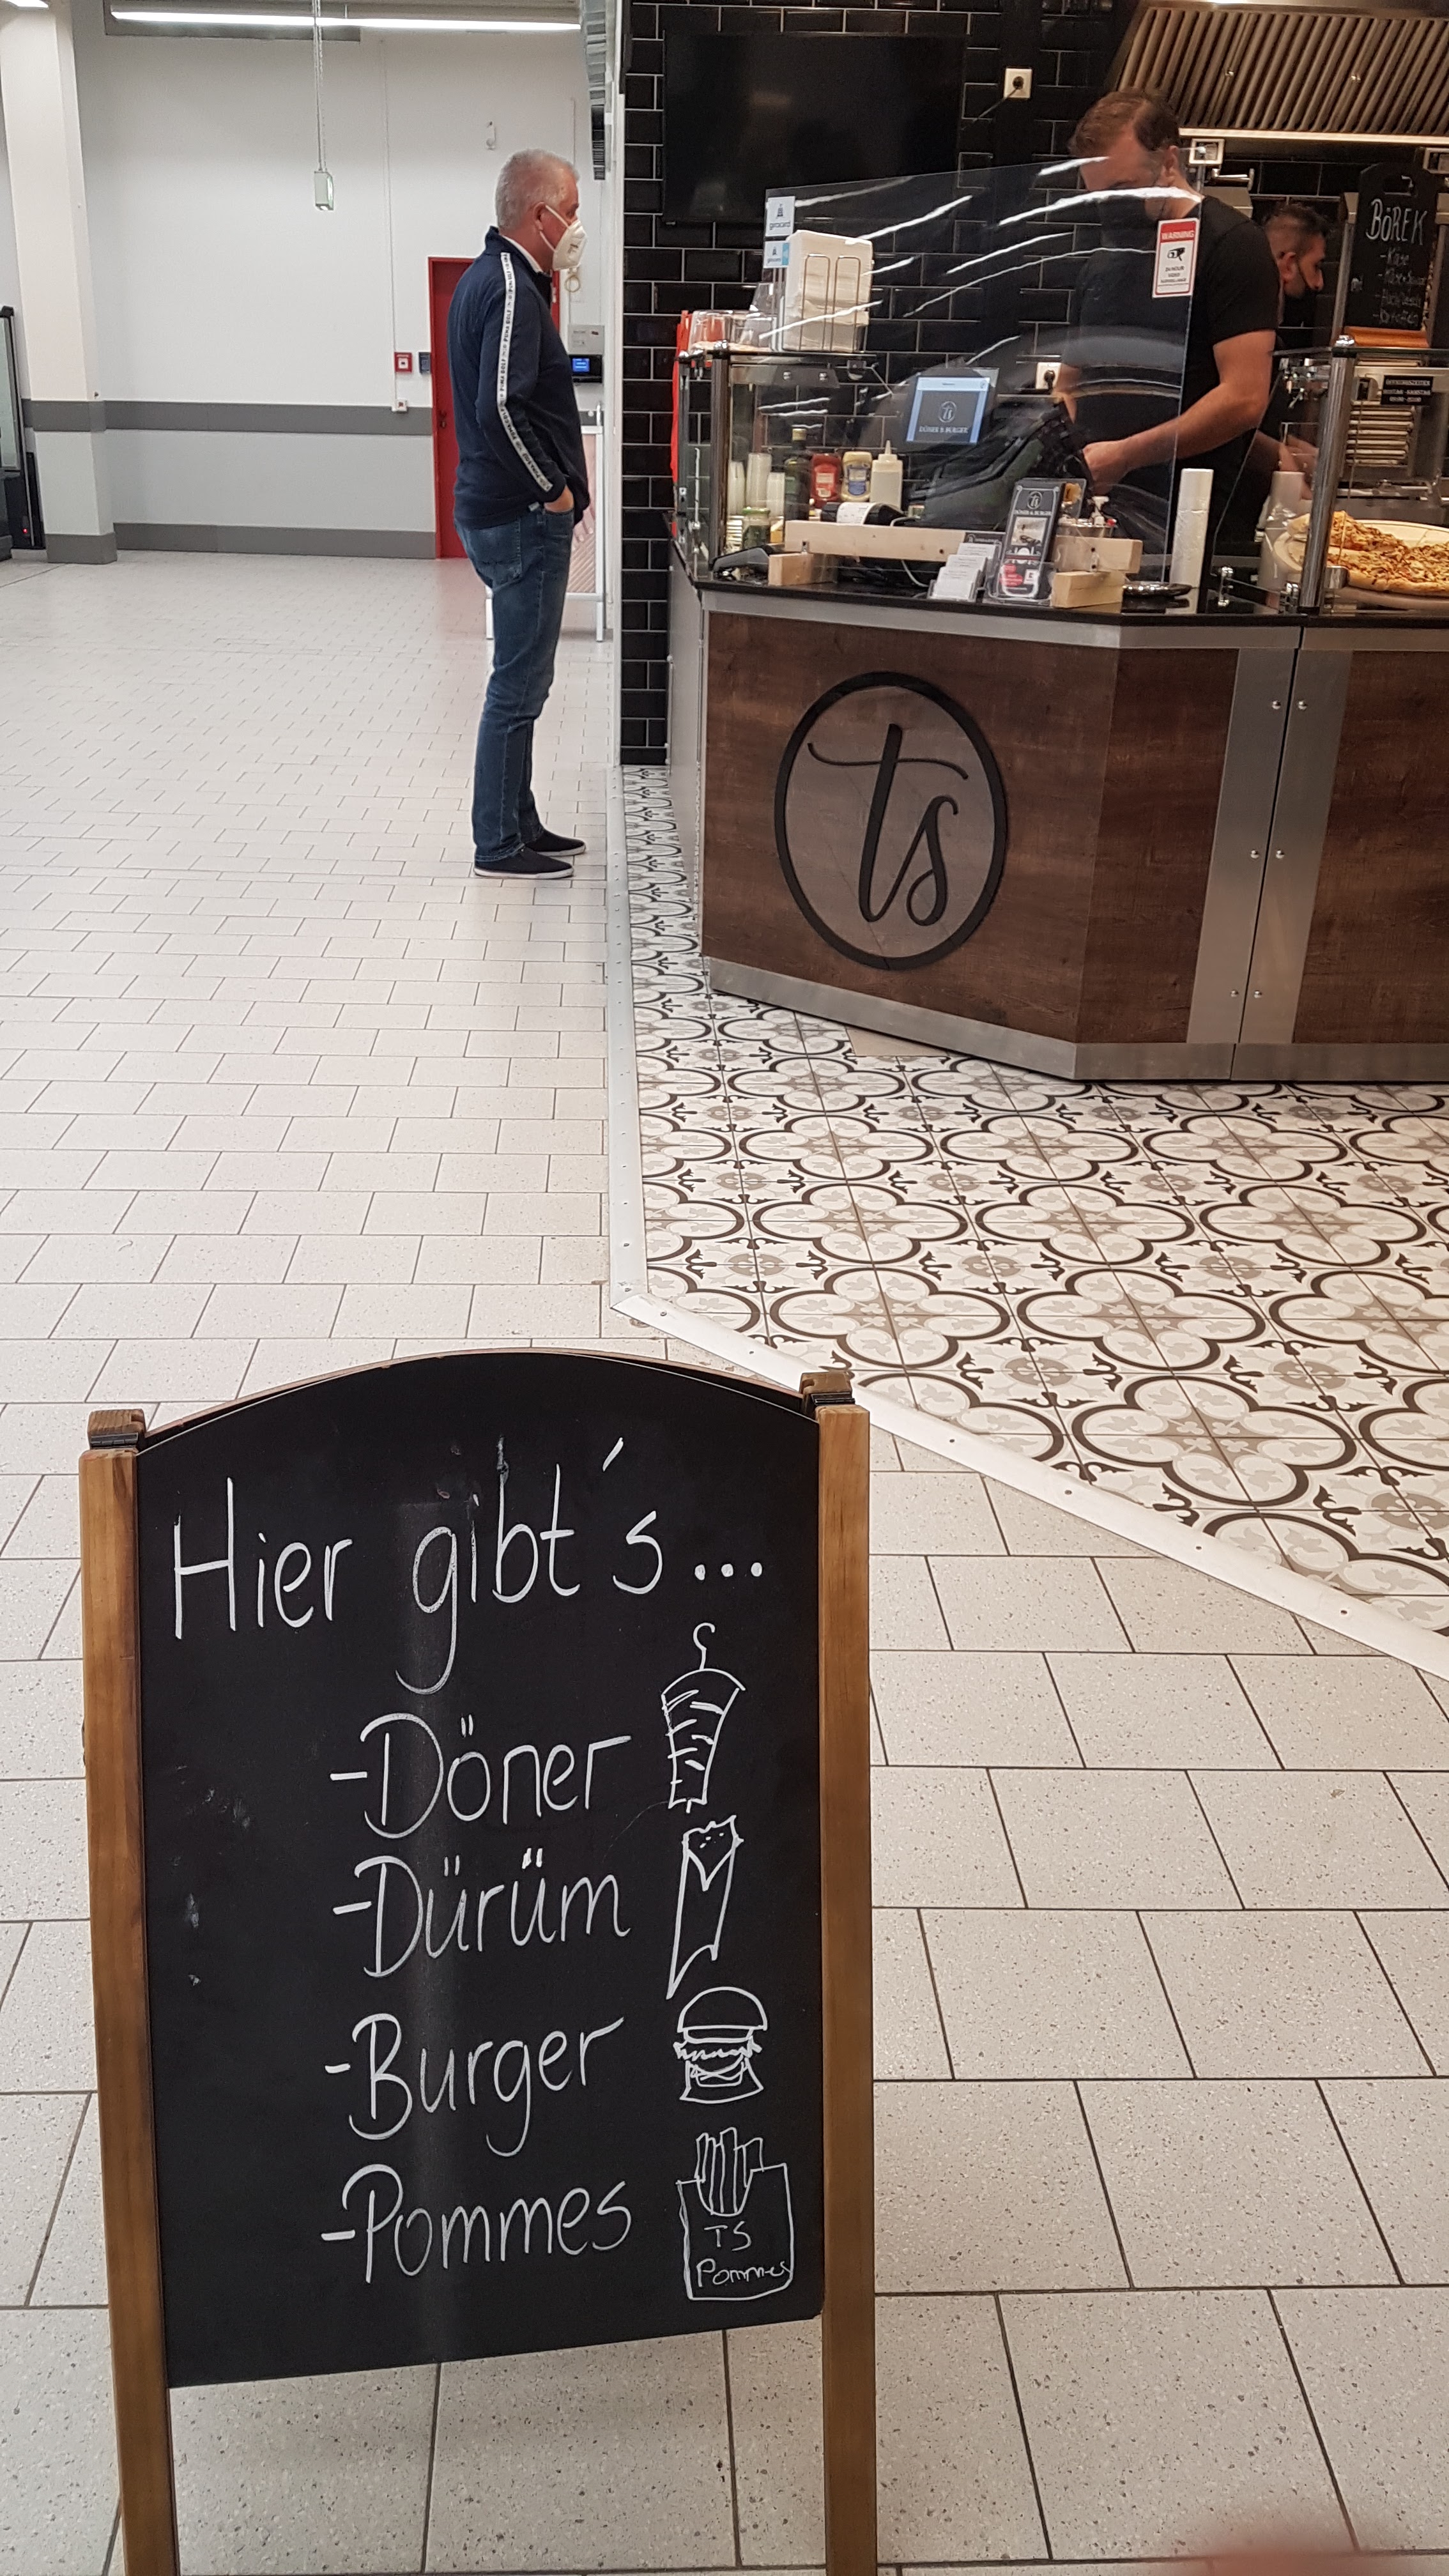 BÖREK
- Käse
WARNING
girocard
DÖNER & BURGER
ts
Hier gibt´s...
-Döner
-Dürüm
-Burger
-Pommes
TS
Pommes